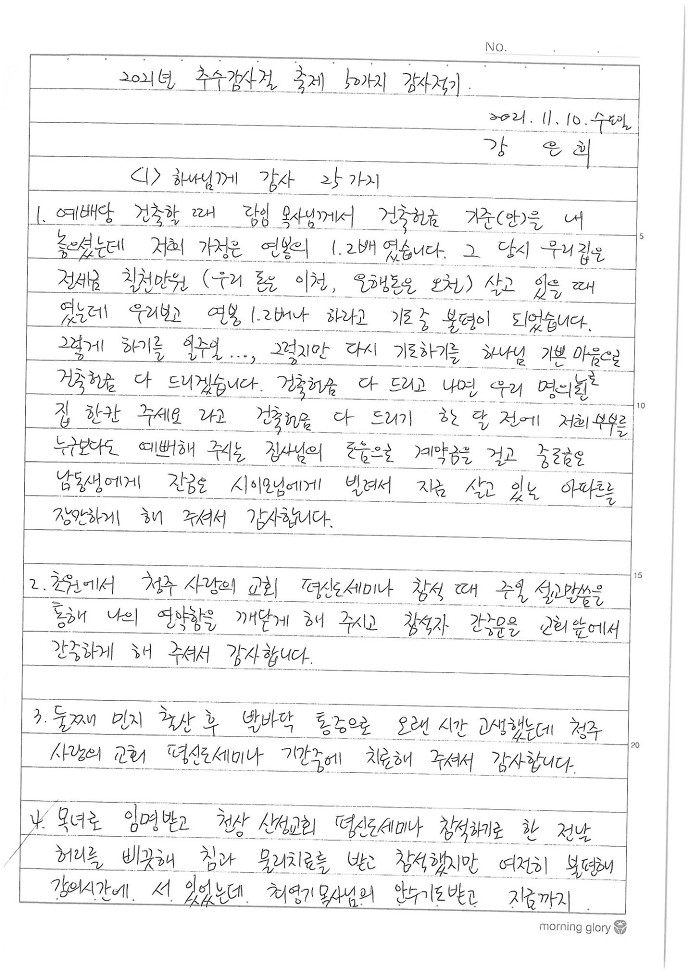 No. . .
2021년 추수감사절 축제 50가지 감사적기.
2021. 11. 10. 수요일
강 은 희
<1> 하나님께 감사 25가지
1. 예배당 건축할 때 담임 목사님께서 건축헌금 기준(안)을 내
놓으셨는데 저희 가정은 연봉의 1.2배 였습니다. 그 당시 우리집은
5
전세금 칠천만원 (우리 돈은 이천, 은행돈은 오천) 살고 있을 때
였는데 우리보고 연봉 1.2배나 하라고 기도중 불평이 되었습니다.
그렇게 하기를 일주일..., 그렇지만 다시 기도하기를 하나님 기쁜 마음으로
건축헌금 다 드리겠습니다. 건축헌금 다 드리고 나면 우리 명의로 된
집 한칸 주세요 라고 건축헌금 다 드리기 한 달 전에 저희 부부를
10
누구보다도 예뻐해 주시는 집사님의 도움으로 계약금을 걸고 중도금은
남동생에게 잔금은 시이모님에게 빌려서 지금 살고 있는 아파트를
장만하게 해 주셔서 감사합니다.
15
2. 초원에서 청주 사랑의 교회 평신도세미나 참석 때 주일 설교말씀을
통해 나의 연약함을 깨닫게 해 주시고 참석자 간증문을 교회 앞에서
간증하게 해 주셔서 감사합니다.
3. 둘째 민지 출산 후 발바닥 통증으로 오랜 시간 고생했는데 청주
20
사랑의 교회 평신도세미나 기간중에 치료해 주셔서 감사합니다.
4. 목녀로 임명받고 천상 산성교회 평신도세미나 참석하기로 한 전날
허리를 삐끗해 침과 물리치료를 받고 참석했지만 여전히 불편해
강의시간에 서 있었는데 최영기목사님의 안수기도받고 지금까지
morning glory